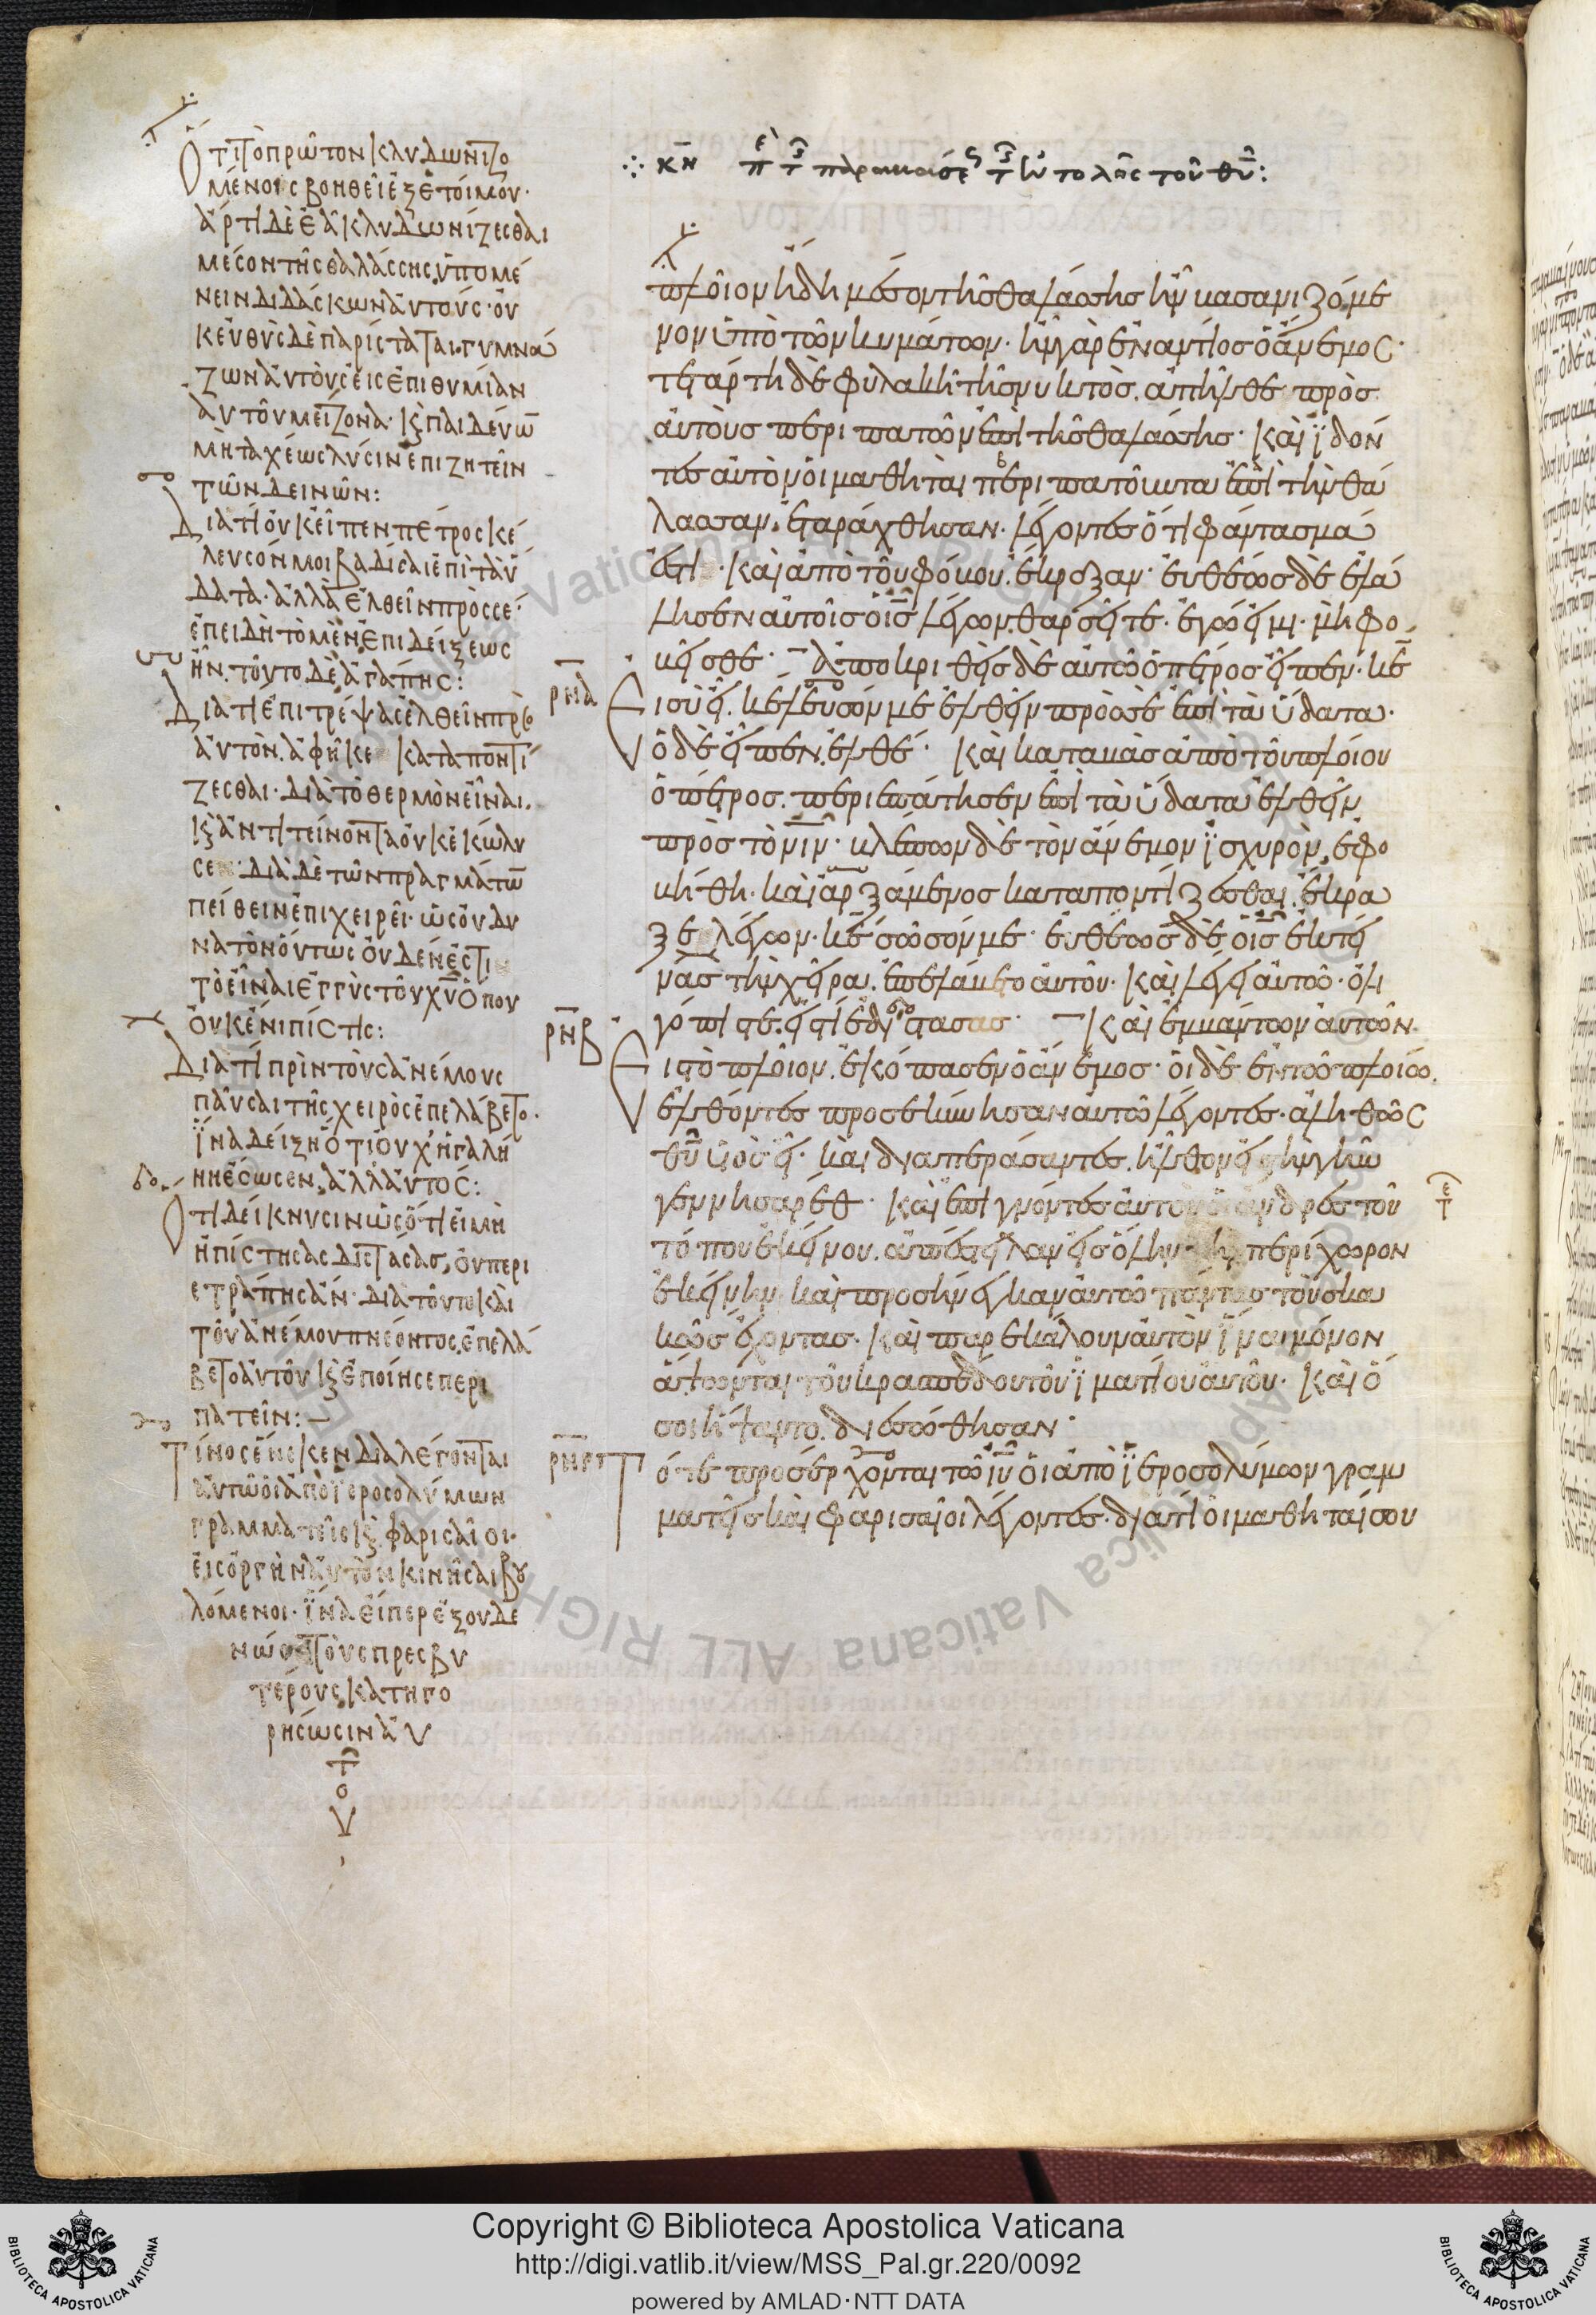 Ὅτι τὸ πρῶτον κλυδωνιζο
μένοις βοηθεῖ ἐξ ἑτοίμου·
ἄρτι δὲ ἐᾶ κλυδωνίζεσθαι
μέσον τῆς θαλάσσης, ὑπομέ
νειν διδάσκων αὐτούς· οὐ
κ εὐθὺς δὲ παρίσταται, γυμνά
ζων αὐτοὺς εἰς ἐπιθυμίαν
αὐτοῦ μείζονα· κ παιδεύω
μὴ ταχέως λύσιν ἐπιζητεῖν
τῶν δεινῶν:
Διατί οὐκ εἶπεν πέτρος κέ
λευσόν μοι βαδίσαι ἐπὶ τὰ ὕ
δατα· ἀλλὰ ἐλθεῖν πρὸς σε·
ἐπειδὴ τὸ μὲν ἐπιδείξεως
ἦν. τοῦτο δὲ ἀγάπης:
Διατί ἐπιτρέψας ἐλθεῖν πρὸ
αὐτὸν. ἀφῆκε καταποντί
ζεσθαι· διὰ τὸ θερμὸν εἶναι.
κ ἀντιτείνοντα οὐκ ἐκώλυ
σεν· διὰ δὲ τῶν πραγμάτω
πείθειν ἐπιχειρεῖ· ὡς οὐ δυ
νατὸν ὄντως οὐδέν ἐστι
τὸ εἶναι ἐγγὺς τοῦ χυ ὅπου
οὐκ ἔνι πίστις:
Διατί πρὶν τοὺς ἀνέμους
παῦσαι τῆς χειρὸς ἐπελάβετο·
ἵνα δείξη ὅτι οὐχ ἡ γαλή
νη ἔσωσεν, ἀλλ αὐτός:
Ὅτι δείκνυσιν ὡς ὅτι εἰ μὴ
ἠπίστησας διστάσας, οὐ περι
ετράπης ἄν· διὰ τοῦτο καὶ
τοῦ ἀνέμου πνέοντος, ἐπελά
βετο αὐτοῦ κ ἐποίησε περι
πατεῖν:
Τίνος ἕνεκεν διαλέγονται
αὐτῶ οἱ ἀπὸ ἱεροσολύμων
γραμματεῖς κ φαρισαῖοι·
εἰς ὀργὴν αὐτὸν κινῆσαι βου
λόμενοι· ἵνα εἴπερ ἐξουδε
νώσ τοὺς πρεσβυ
τέρους, κατηγο
ρήσωσιν αὐ
τ
ο
υ
κη
τοῦ θυ:
πλοῖον ἤδη μέσον τῆς θαλάσσης ἦν βασανιζόμε
νον ὑπὸ τῶν κυμάτων· ἦν γὰρ ἐναντίος ὁ ἄνεμος·
τετάρτη δὲ φυλακῆ τῆς νυκτὸς. ἀπῆλθε πρὸς
αὐτοὺς περιπατῶν ἐπὶ τῆς θαλάσσης· καὶ ἰδόν
τες αὐτὸν οἱ μαθηταὶ περιπατοῦντα ἐπὶ τὴν θά
λασσαν, ἐταράχθησαν· λέγοντες ὅτι φάντασμά
ἐστι· καὶ ἀπὸ τοῦ φόβου ἔκραξαν· εὐθέως δὲ ἐλά
λησεν αὐτοῖς ὁ ις λέγων. θαρσεῖτε· ἐγώ εἰμι· μὴ φο
βεῖσθε· ἀποκριθεὶς δὲ αὐτῶ ὁ πέτρος εἶπεν· κε
ρνα
εἰ σὺ εἶ. κέλευσόν με ἐλθεῖν πρὸς σὲ ἐπὶ τὰ ὕδατα·
ὁ δὲ εἶπεν. ἐλθέ· καὶ καταβὰς ἀπὸ τοῦ πλοίου
ὁ πέτρος. περιεπάτησεν ἐπὶ τὰ ὕδατα ἐλθεῖν
πρὸς τὸν ιν· βλέπων δὲ τὸν ἄνεμον ἰσχυρὸν, ἐφο
βήθη· καὶ ἀρξάμενος καταποντίζεσθαι. ἔκρα
ξε λέγων· κε σῶσόν με· εὐθέως δὲ ὁ ις ἐκτεί
νας τὴν χεῖρα, ἐπελάβετο αὐτοῦ· καὶ λέγει αὐτῶ· ὀλι
γόπιστε. εἰς τί ἐδίστασας· καὶ ἐμβάντων αὐτῶν
ρνβ
εἰς τὸ πλοῖον. ἐκόπασεν ὁ ἄνεμος· οἱ δὲ ἐν τῶ πλοίω.
ἐλθόντες προσεκύνησαν αὐτῶ λέγοντες· ἀληθῶς
θυ υἱὸς εἶ· καὶ διαπεράσαντες. ἦλθον εἰς τὴν γῆν
γεννησαρέθ· καὶ ἐπιγνόντες αὐτὸν οἱ ἄνδρες τοῦ
τόπου ἐκείνου. ἀπέστειλαν εἰς ὅλην τὴν περίχωρον
ἐκείνην καὶ προσήνεγκαν αὐτῶ πάντας τοὺς κα
κῶς ἔχοντας· καὶ παρεκάλουν αὐτὸν ἵνα μόνον
ἅψωνται τοῦ κρασπέδου τοῦ ἱματίου αὐτοῦ· καὶ ὅ
σοι ἥψαντο. διεσώθησαν·
ρνγ
Τότε προσέρχονται τῶ ιυ οἱ ἀπὸ ἱεροσολύμων γραμ
ματεῖς καὶ φαρισαῖοι λέγοντες· διατί οἱ μαθηταί σου
Copyright © Biblioteca Apostolica Vaticana
http://digi.vatlib.it/view/MSS_Pal.gr.220/0092
powered by AMLAD·NTT DATA